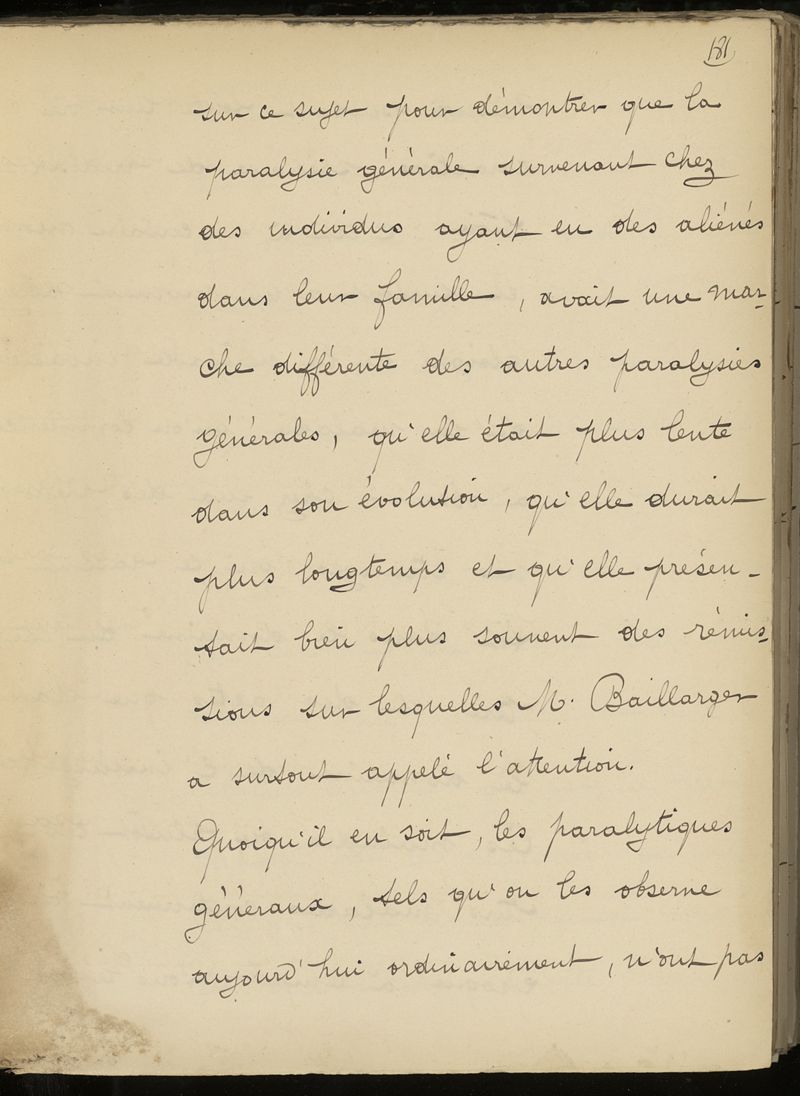 181
sur ce sujet pour démontrer que la
paralysie générale survenant chez
des individus ayant eu des aliénés
dans leur famille, avait une mar-
che différente des autres paralysies
générales, qu'elle était plus lente
dans son évolution, qu'elle durait
plus longtemps et qu'elle présen-
tait bien plus souvent des rémis-
sions sur lesquelles M. Baillarger
a surtout appelé l'attention.
Quoiqu'il en soit, les paralytiques
généraux, tels qu'on les observe
aujourd'hui ordinairement, n'ont pas